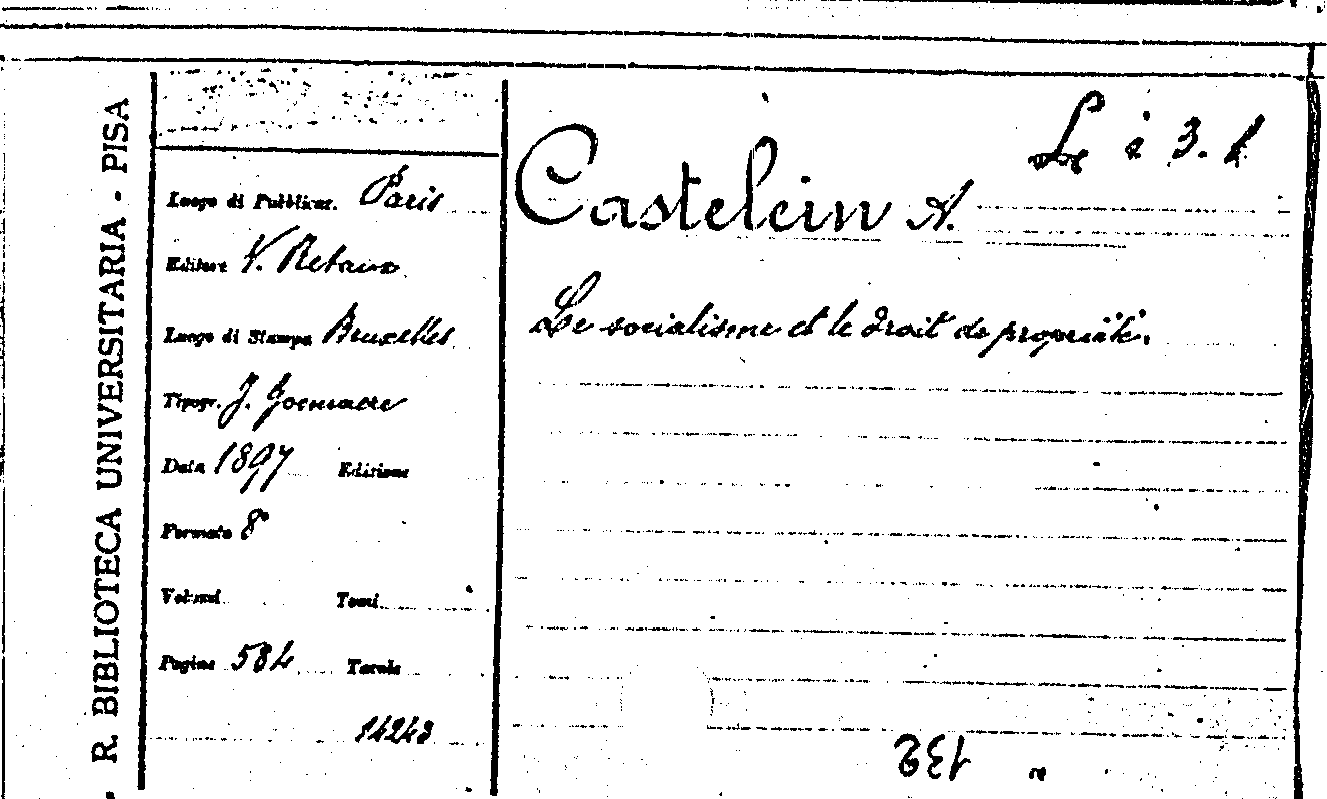 R. BIBLIOTECA UNIVERSITARIA - PISA
Luogo di Pubblicaz. Paris
Editore V. Retaux
Luogo di Stampa Bruxelles
Tipogr. J. Goemaere
Data 1897 Edizione
Formato 8°
Volumi Tomi
Pagine 584 Tavole
14243
L i 3.
Castelein A.
Le socialisme et le droit de propriété.
132